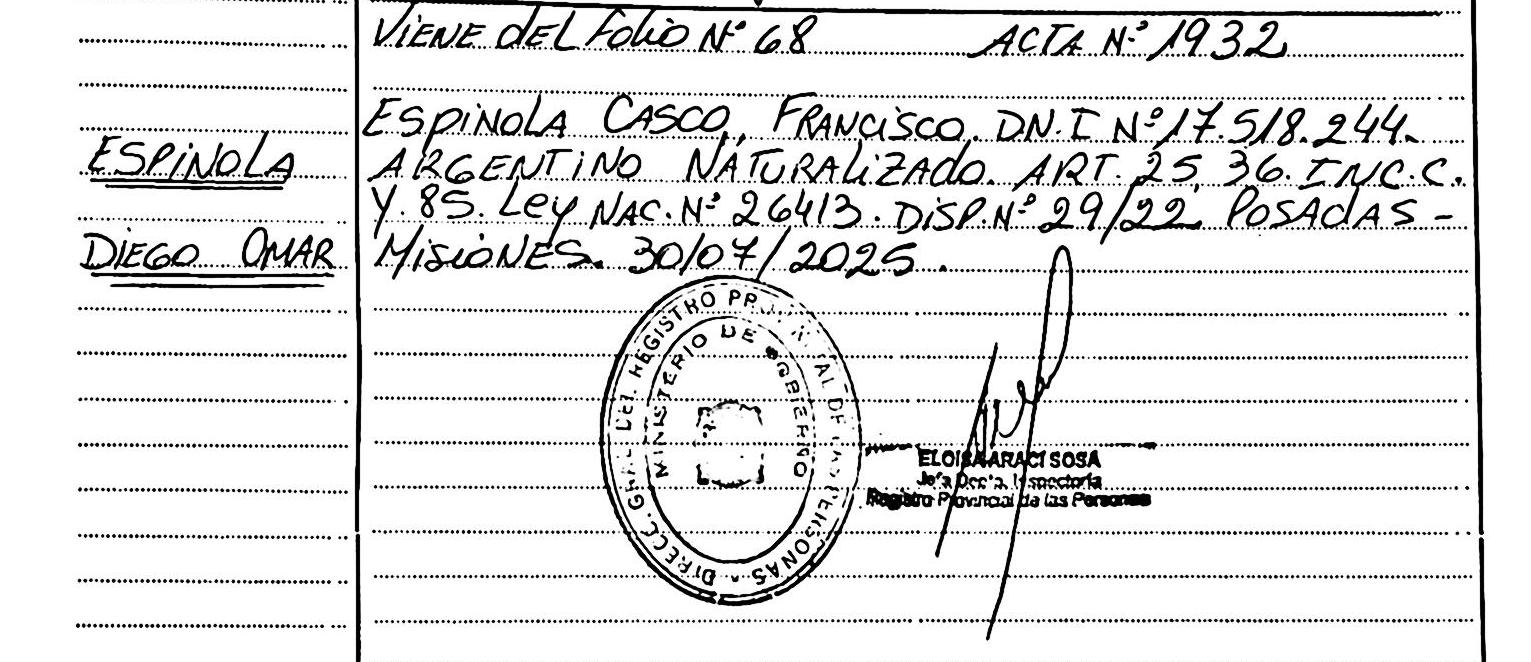 VIENE DEL FOLIO Nº 68 ACTA Nº 1932
ESPINOLA CASCO, FRANCISCO. D.N.I Nº 17.518.244.
ESPINOLA
ARGENTINO NATURALIZADO. ART. 25, 36. INC. C.
Y. 85. LEY NAC. Nº 26413. DISP. Nº 29/22. POSADAS -
DIEGO OMAR
MISIONES. 30/07/2025.
DIRECC. GRAL DEL REGISTRO PROVINCIAL DE LAS PERSONAS
MINISTERIO DE GOBIERNO
ELOISA ARACI SOSA
Jefa Inspectoria
Registro Provincial de las Personas